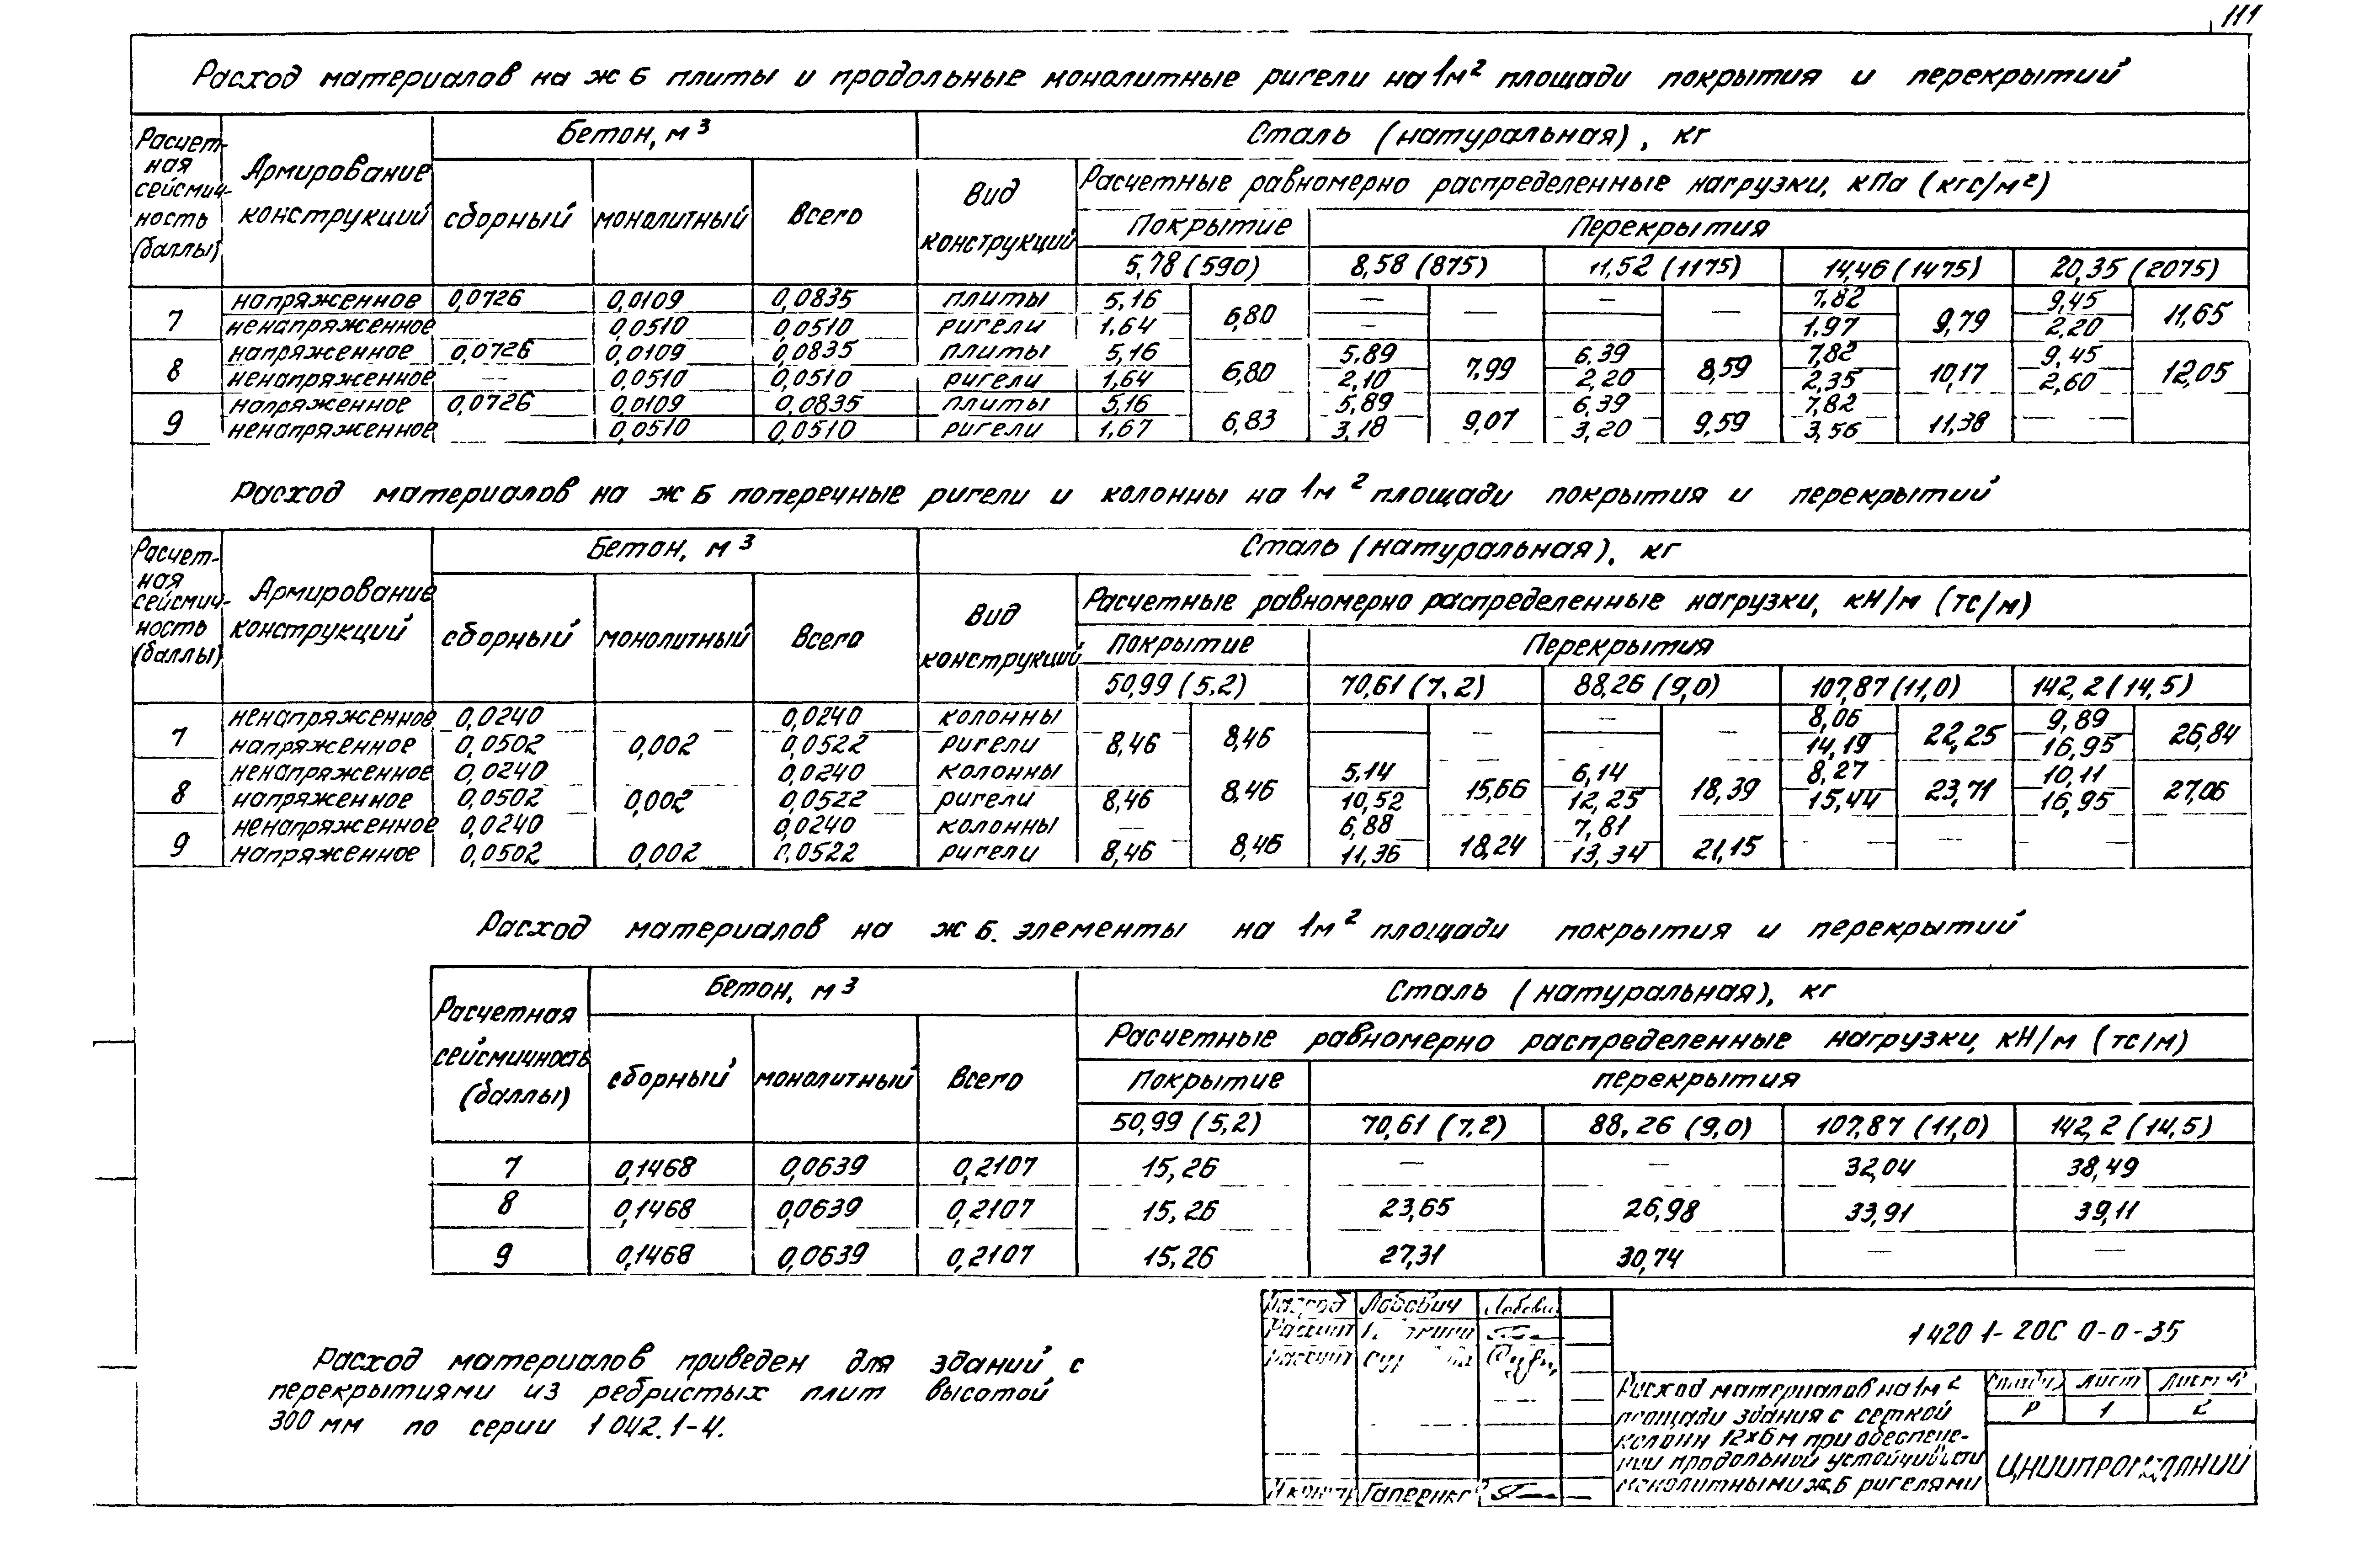 111
Расход материалов на ж б плиты и продольные монолитные ригели на 1м² площади покрытия и перекрытий
Расчет- Армирование Бетон, м³ Сталь (натуральная), кг
ная
сейсмич- конструкций сборный монолитный всего Вид Расчетные равномерно распределенные нагрузки, кПа (кгс/м²)
ность конструкций Покрытие Перекрытия
(баллы) 5,78 (590) 8,58 (875) 11,52 (1175) 14,46 (1475) 20,35 (2075)
7 напряженное 0,0726 0,0109 0,0835 плиты 5,16 6,80 — — — — 7,82 9,79 9,45 11,65
ненапряженное 0,0510 0,0510 ригели 1,64 — 1,97 2,20
8 напряженное 0,0726 0,0109 0,0835 плиты 5,16 6,80 5,89 7,99 6,39 8,59 7,82 10,17 9,45 12,05
ненапряженное — 0,0510 0,0510 ригели 1,64 2,10 2,20 2,35 2,60
9 напряженное 0,0726 0,0109 0,0835 плиты 5,16 6,83 5,89 9,07 6,39 9,59 7,82 11,38 — —
ненапряженное 0,0510 0,0510 ригели 1,67 3,18 3,20 3,56
Расход материалов на ж б поперечные ригели и колонны на 1м² площади покрытия и перекрытий
Расчет- Армирование Бетон, м³ Сталь (натуральная), кг
ная
сейсмич- конструкций сборный монолитный всего Вид Расчетные равномерно распределенные нагрузки, кН/м (тс/м)
ность конструкций Покрытие Перекрытия
(баллы) 50,99 (5,2) 70,61 (7,2) 88,26 (9,0) 107,87 (11,0) 142,2 (14,5)
7 ненапряженное 0,0240 0,0240 колонны 8,46 — — — 8,06 22,25 9,89 26,84
напряженное 0,0502 0,002 0,0522 ригели 8,46 — 14,19 16,95
8 ненапряженное 0,0240 0,0240 колонны 8,46 5,14 15,66 6,14 18,39 8,27 23,71 10,11 27,06
напряженное 0,0502 0,002 0,0522 ригели 8,46 10,52 12,25 15,44 16,95
9 ненапряженное 0,0240 0,0240 колонны — 8,46 6,88 18,24 7,81 21,15 — — — —
напряженное 0,0502 0,002 0,0522 ригели 8,46 11,36 13,34
Расход материалов на ж б. элементы на 1м² площади покрытия и перекрытий
Расчетная Бетон, м³ Сталь (натуральная), кг
сейсмичность сборный монолитный всего Расчетные равномерно распределенные нагрузки, кН/м (тс/м)
(баллы) Покрытие перекрытия
50,99 (5,2) 70,61 (7,2) 88,26 (9,0) 107,87 (11,0) 142,2 (14,5)
7 0,1468 0,0639 0,2107 15,26 — — 32,04 38,49
8 0,1468 0,0639 0,2107 15,26 23,65 26,98 33,91 39,11
9 0,1468 0,0639 0,2107 15,26 27,31 30,74 — —
Расход материалов приведен для зданий с
перекрытиями из ребристых плит высотой
300 мм по серии 1 042.1-4.
Лобович
1 420 1-20С 0-0-35
Расход материалов на 1м²
площади здания с сеткой
колонн 12×6м при обеспече-
нии продольной устойчивости
монолитными ж.б ригелями
лист
Р 1 2